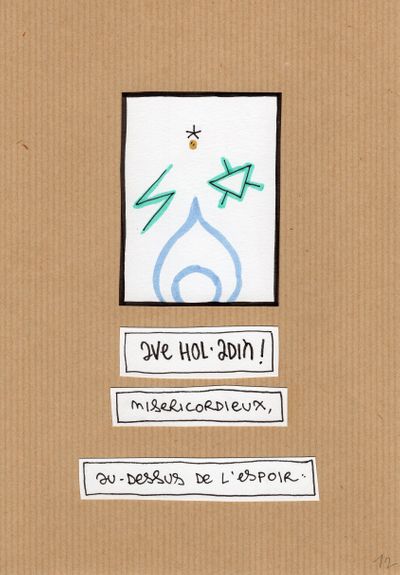 *
ave HOL·adin !
miseRicoRdieux,
au-dessus de l'espoir..
12